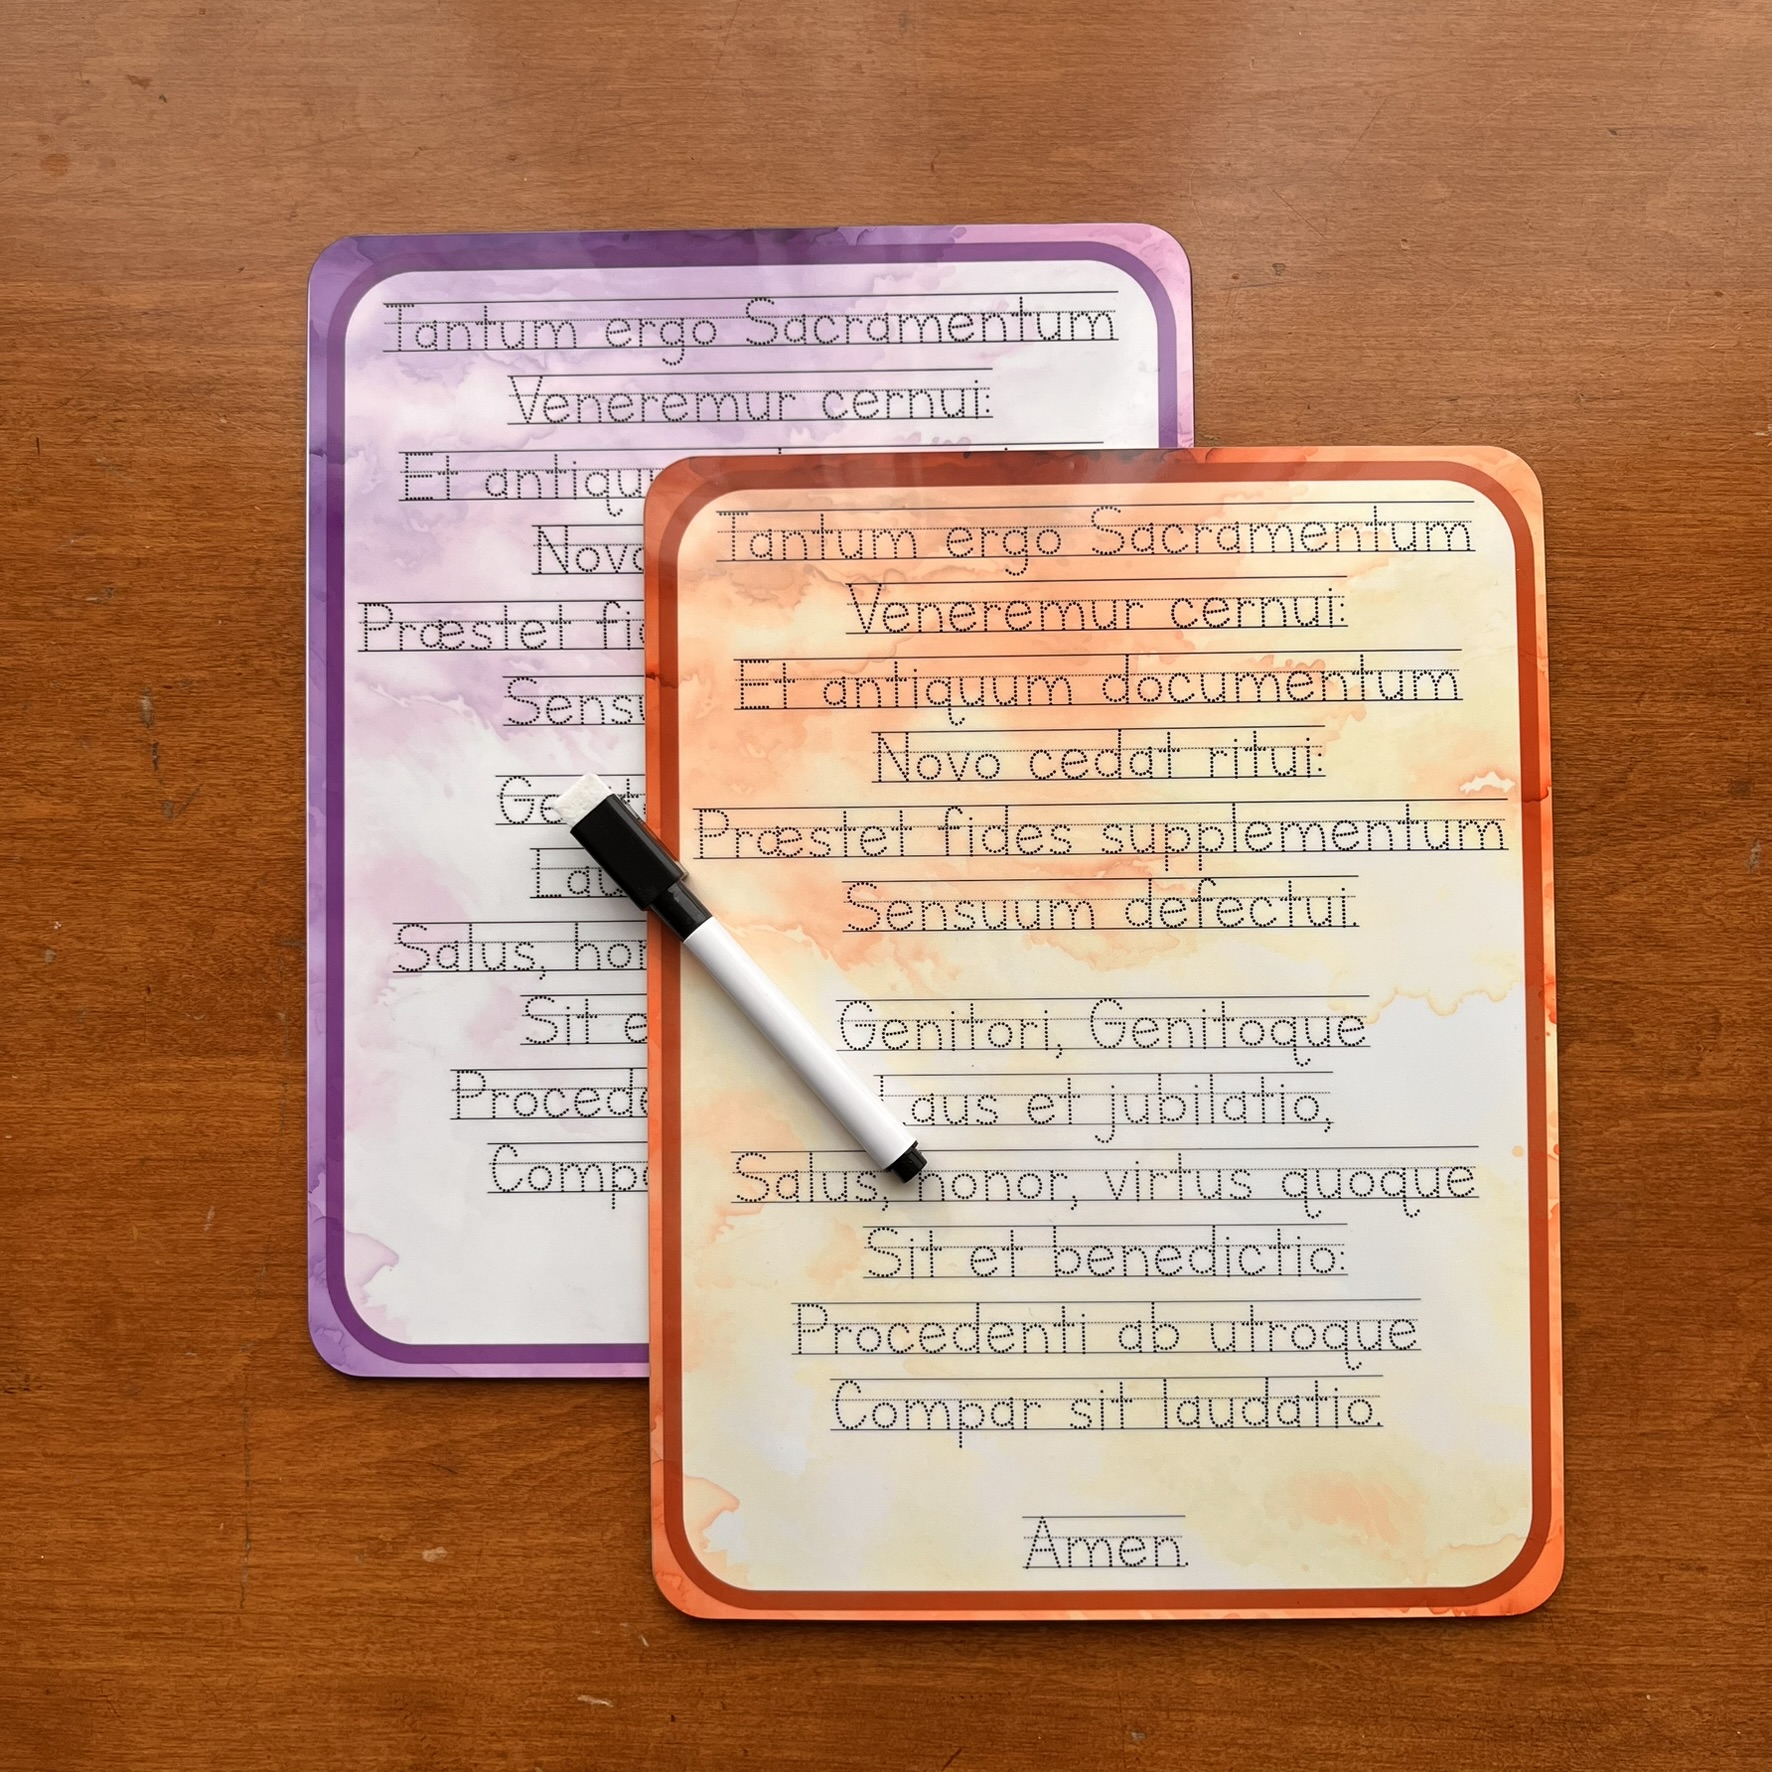 Tantum ergo Sacramentum
Veneremur cernui:
Et antiqu
Novo
Præstet fid
Sensu
Ge
Lau
Salus, hon
Sit e
Procede
Compa
Tantum ergo Sacramentum
Veneremur cernui:
Et antiquum documentum
Novo cedat ritui:
Præstet fides supplementum
Sensuum defectui.
Genitori, Genitoque
Laus et jubilatio,
Salus, honor, virtus quoque
Sit et benedictio:
Procedenti ab utroque
Compar sit laudatio.
Amen.